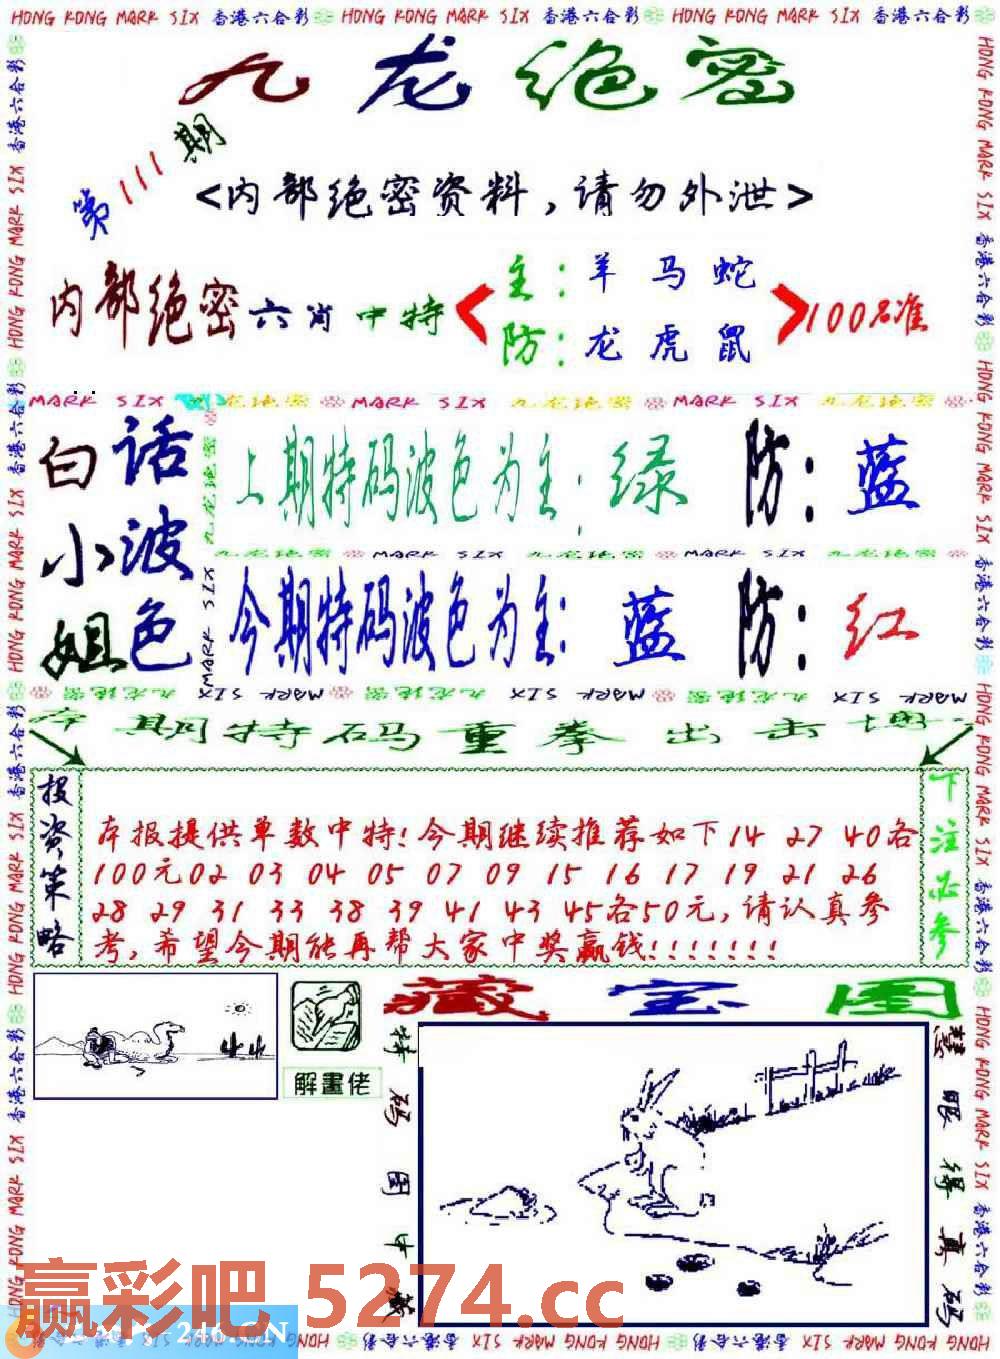 HONG KONG MARK SIX 香港六合彩 HONG KONG MARK SIX 香港六合彩 HONG KONG MARK SIX 香港六合彩
九龙绝密
第111期
<内部绝密资料,请勿外泄>
内部绝密六肖中特
主:羊 马 蛇
防:龙 虎 鼠
100%准
MARK SIX 九龙绝密 MARK SIX 九龙绝密 MARK SIX 九龙绝密
白小姐
话波色
上期特码波色为主:绿 防:蓝
九龙绝密 MARK SIX 九龙绝密 MARK SIX 九龙绝密
今期特码波色为主:蓝 防:红
九龙绝密 MARK SIX 九龙绝密 MARK SIX 九龙绝密 MARK SIX
本期特码重拳出击
投资策略
本报提供单数中特!今期继续推荐如下14 27 40各
100元02 03 04 05 07 09 15 16 17 19 21 26
28 29 31 33 38 39 41 43 45各50元,请认真参
考,希望今期能再帮大家中奖赢钱!!!!!!!
下注必参
解畫佬
藏宝图
特码图中藏
慧眼得真码
赢彩吧 5274.cc
246.CN